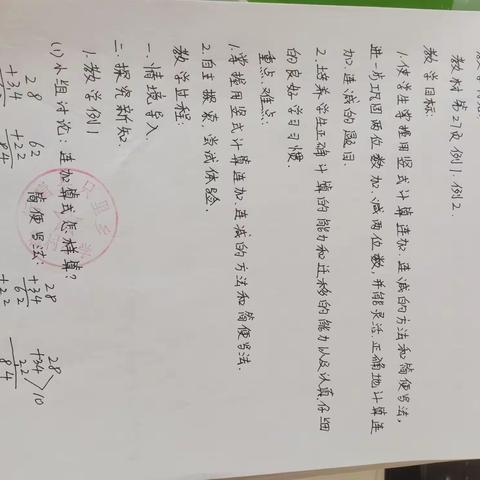 教材第27页例1.例2.
教学目标:
1.使学生掌握用竖式计算连加.连减的方法和简便写法,
进一步巩固两位数加、减两位数,并能灵活正确地计算连
加、连减的题目.
2.培养学生正确计算的能力和迁移的能力以及认真.仔细
的良好学习习惯.
重点.难点:
1.掌握用竖式计算连加.连减的方法和简便写法.
2.自主探索.尝试体验.
教学过程:
一.情境导入.
二.探究新知.
1.教学例1
(1)小组讨论:连加算式怎样算?
28 62 简便写法: 28 28
+34 +22 +34 +34
84 62 22 10
+22 84